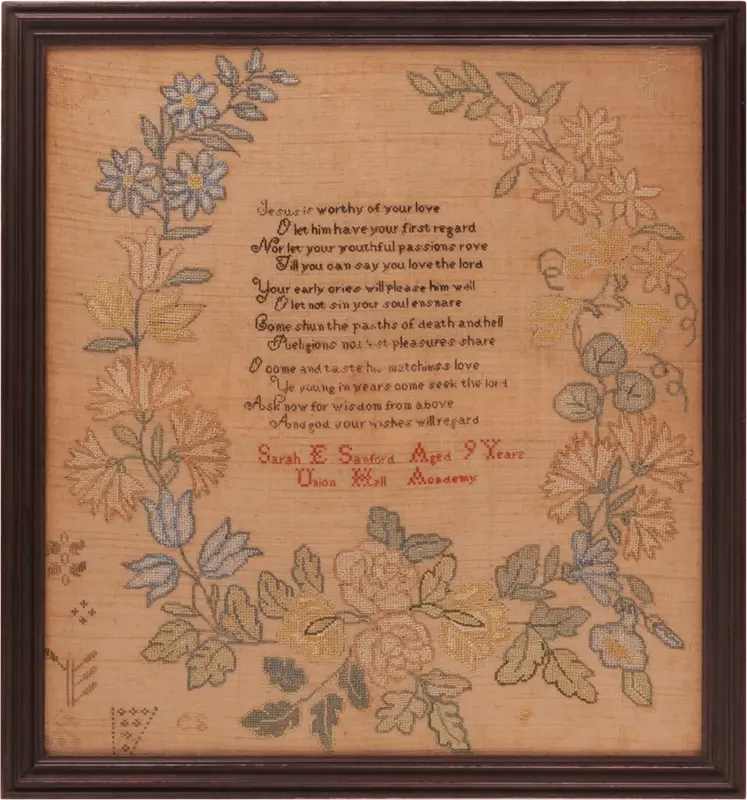 Jesus is worthy of your love
O let him have your first regard
Nor let your youthful passions rove
Till you can say you love the lord
Your early cries will please him well
O let not sin your soul ensnare
Come shun the paths of death and hell
Religions pleasures share
O come and taste his matchless love
Ye young in years come seek the lord
Ask now for wisdom from above
And god your wishes will regard
Sarah E Sanford Aged 9 Years
Union Hall Academy
CS